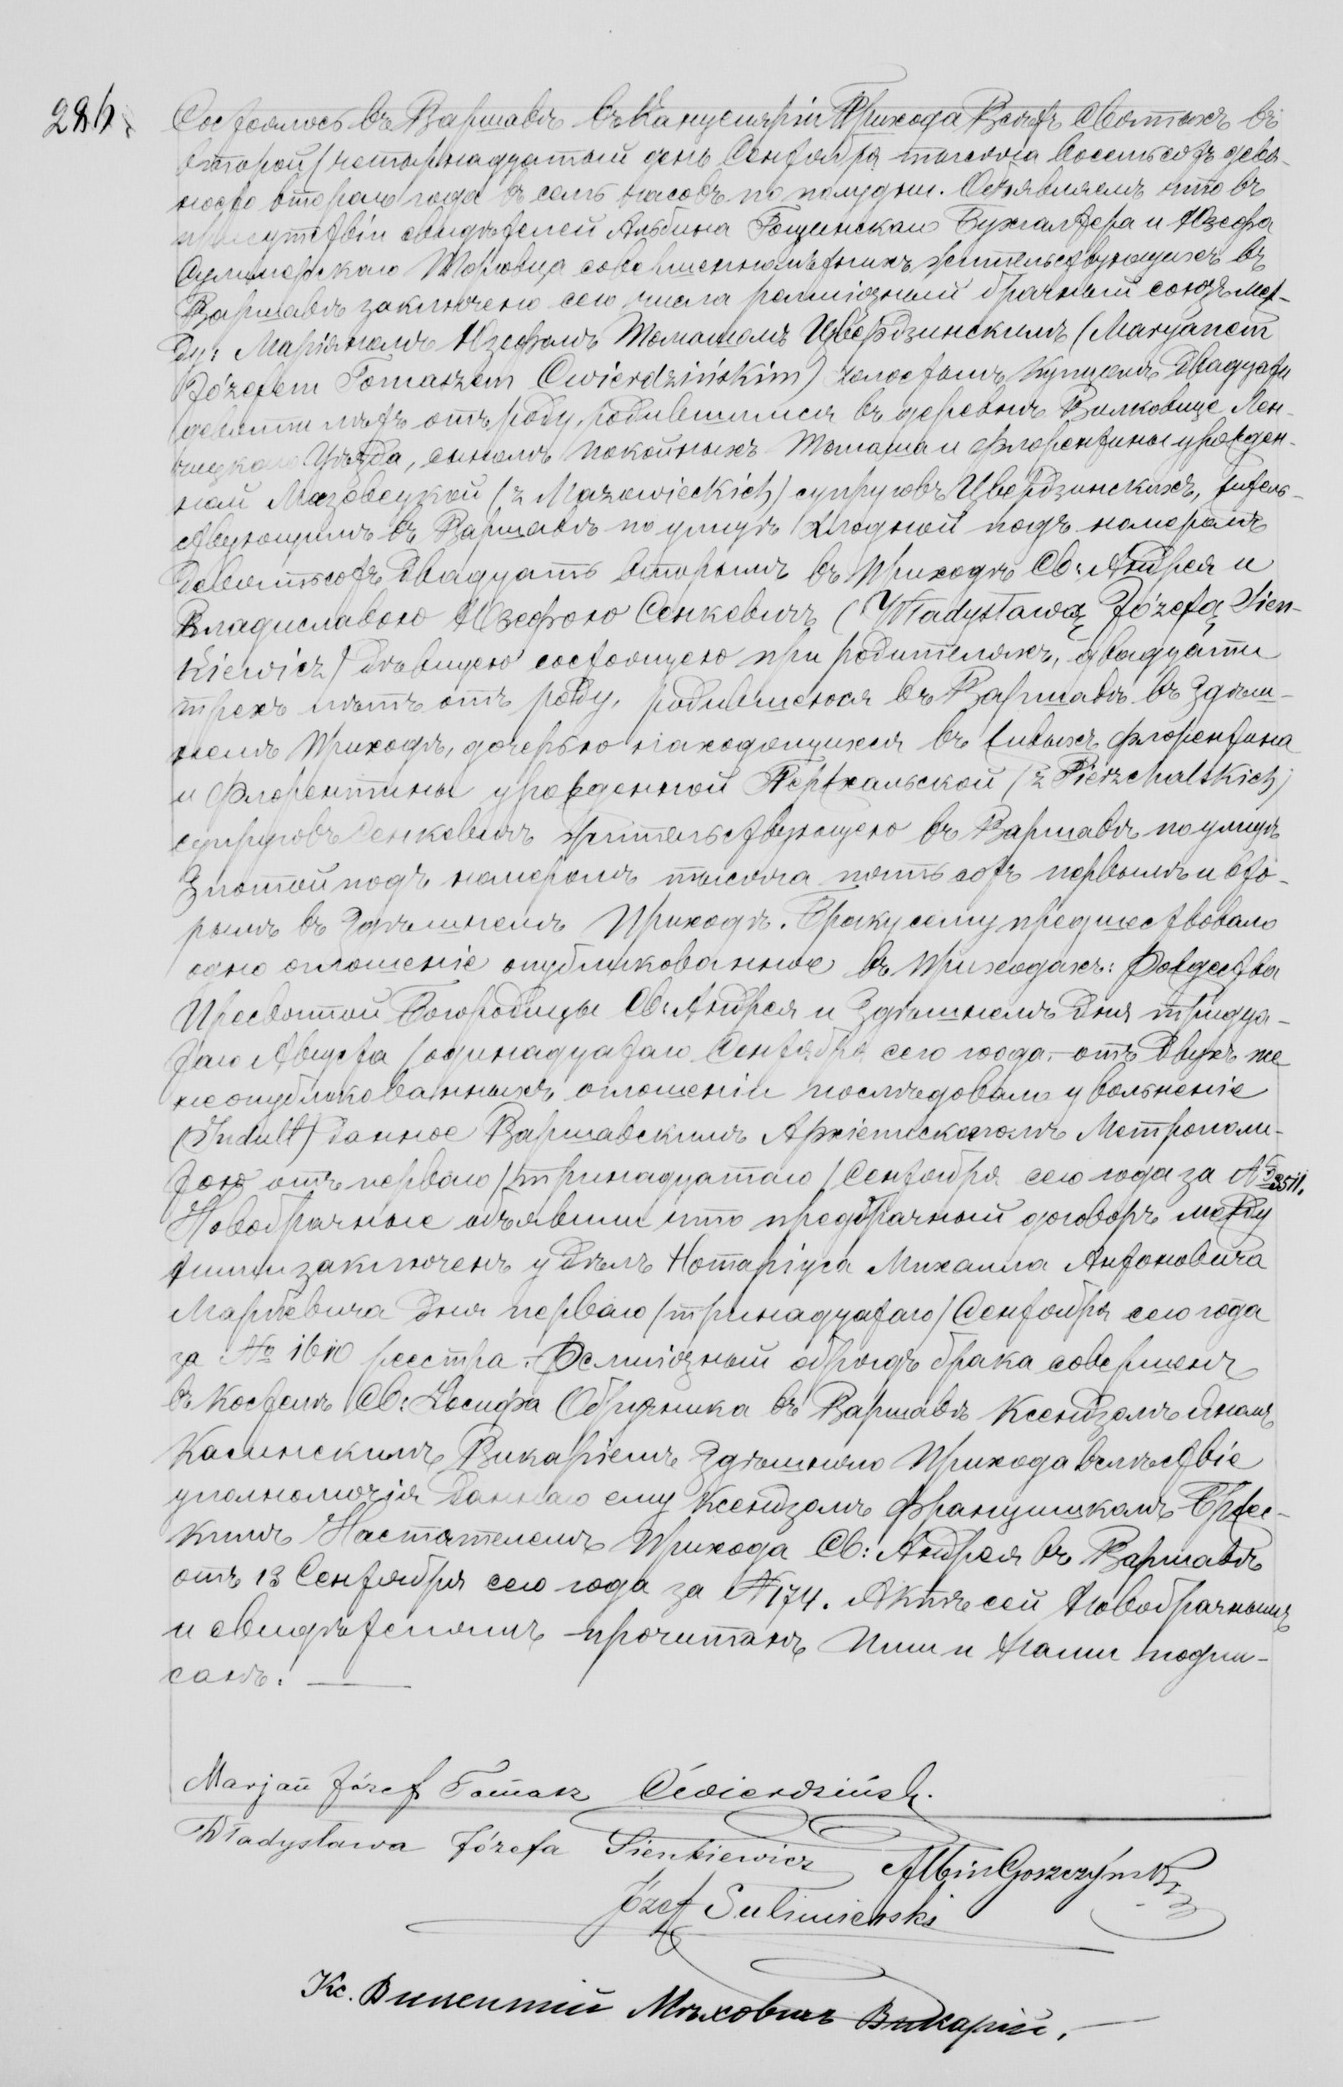 284.
Состоялось въ Варшавѣ въ Канцеляріи Прихода Всѣхъ Святыхъ въ
второй/четырнадцатый день Сентября тысяча восемьсотъ девя-
носто второго года въ семь часовъ по полудни. Объявляемъ что въ
присутствіи свидѣтелей Альбина Гощинскаго Бухгалтера и Юзефа
Сулимерскаго Торговца совершеннолѣтнихъ жительствующихъ въ
Варшавѣ заключено сего числа религіозный брачный союзъ меж-
ду: Маріяномъ Юзефомъ Томашомъ Цвердзинскимъ (Maryanem
Józefem Tomaszem Cwierdzińskim) холостымъ Купцемъ двадцати
девяти лѣтъ отъ роду, родившимся въ деревнѣ Вилковице Лен-
чицкаго Уѣзда, сыномъ покойныхъ Томаша и Флорентины урожден-
ной Мазовецкой (z Mazowieckich) супруговъ Цвердзинскихъ, житель-
ствующимъ въ Варшавѣ по улицѣ Хлодной подъ номеромъ
девятьсотъ двадцать вторымъ въ Приходѣ Св: Андрея и
Владиславою Юзефою Сенкевичъ (Władysławą Józefą Sien-
kiewicz) дѣвицею состоящею при родителяхъ, двадцати
трехъ лѣтъ отъ роду, родившеюся въ Варшавѣ въ здѣш-
немъ Приходѣ, дочерью находящихся въ живыхъ Флорентина
и Флорентины урожденной Пержхальской (z Pierzchalskich)
супруговъ Сенкевичъ жительствующею въ Варшавѣ по улицѣ
Злотой подъ номеромъ тысяча пятьсотъ первымъ и вто-
рымъ въ здѣшнемъ Приходѣ. Браку сему предшествовало
одно оглошеніе опубликованное въ Приходахъ: Рождества
Пресвятой Богородицы Св: Андрея и Здѣшнемъ дня тридца-
таго Августа/одинадцатаго Сентября сего года, отъ двухъ же
неопубликованныхъ оглошеніи послѣдовало увольненіе
(Indult) данное Варшавскимъ Архіепископомъ Метрополи-
тою отъ перваго/тринадцатаго/Сентября сего года за № 3511.
Новобрачные объявили что предбрачный договоръ между
ними заключенъ у дѣлъ Нотаріуса Михаила Антоновича
Маркевича дня перваго/тринадцатаго/Сентября сего года
за № 1610 реестра. Религіозный обрядъ брака совершенъ
въ Костелѣ Св: Іосифа Обручника въ Варшавѣ Ксендзомъ Яномъ
Касинскимъ Викаріемъ здѣшняго Прихода вслѣдствіе
уполномочія даннаго ему Ксендзомъ Францишкомъ Бржес-
кимъ Настоятелемъ Прихода Св: Андрея въ Варшавѣ
отъ 13 Сентября сего года за № 174. Актъ сей Новобрачнымъ
и свидѣтелямъ прочитанъ Ими и Нами подпи-
санъ.
Marjan Józef Tomasz Cwierdziński.
Władysława Józefa Sienkiewicz Albin Goszczyński
Józef Sulimierski
Кс. Викентій Мѣховичъ Викарій.